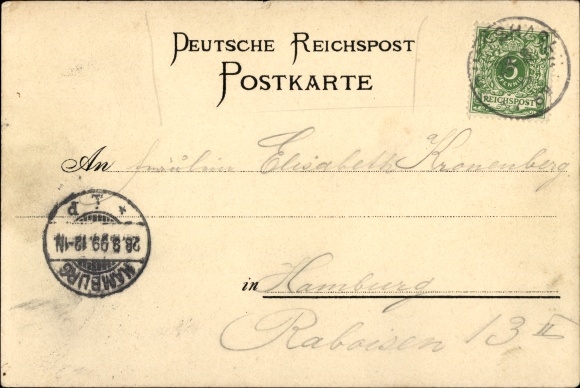 DEUTSCHE REICHSPOST
POSTKARTE
5
PFENNIG
REICHSPOST
An Fräulein Elisabeth Kronenberg
in Hamburg
Raboisen 13 II
HAMBURG
28.9.99.12-1N.
* 1 P